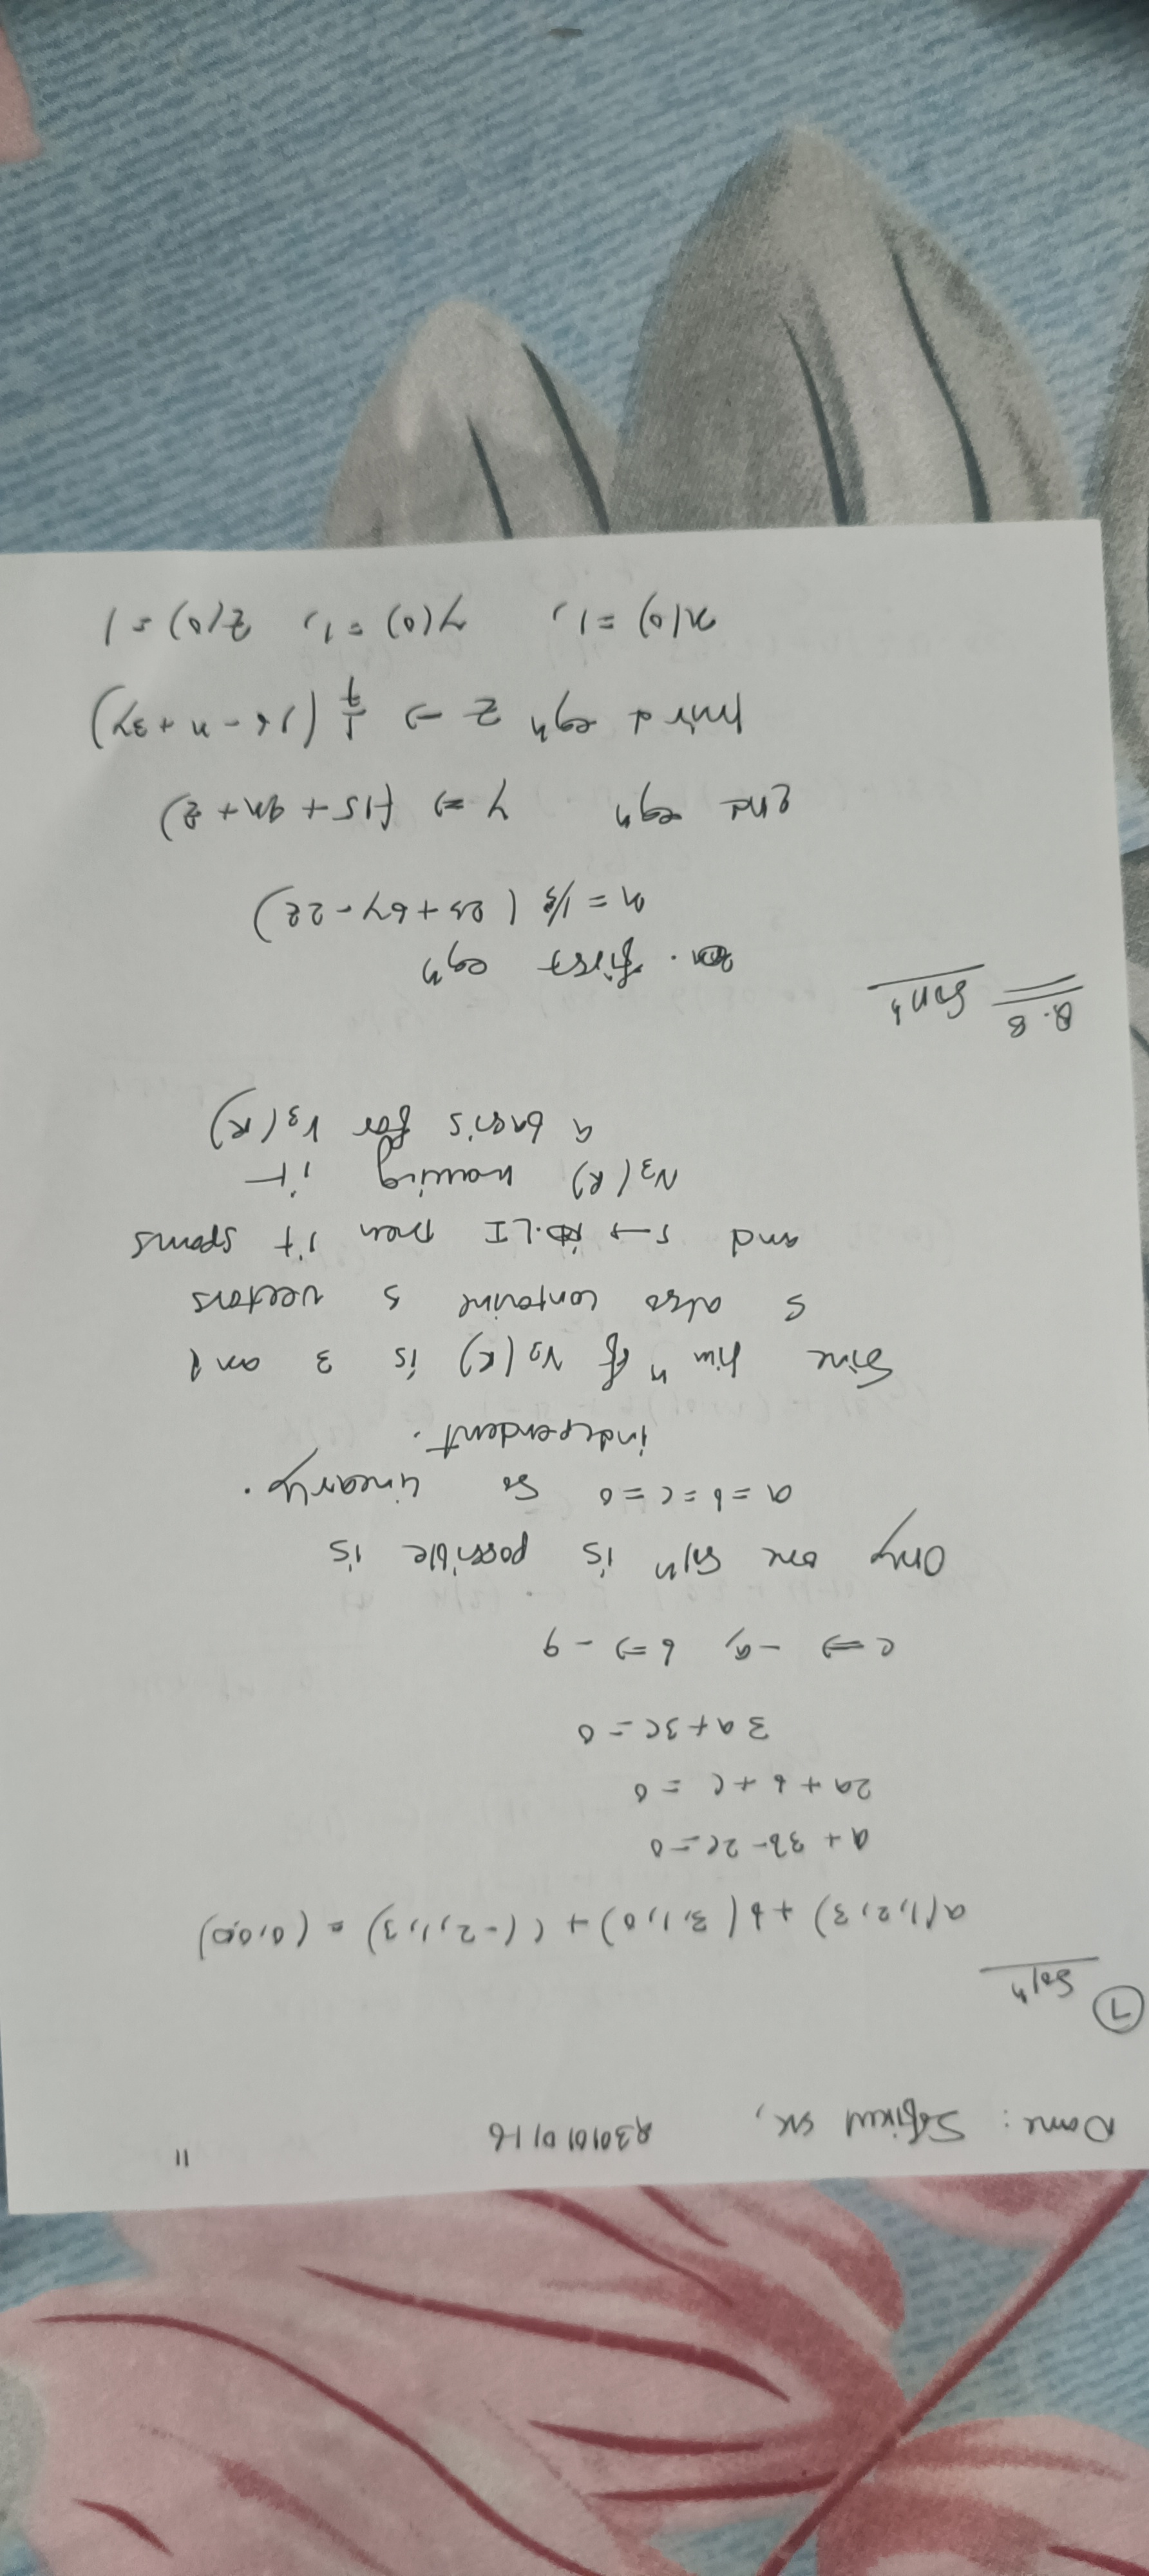 Name: Sofikul SK, 2301010116 11
7 Solⁿ
a(1,2,3) + b(3,1,0) + c(-2,1,3) = (0,0,0)
a + 3b - 2c = 0
2a + b + c = 0
3a + 3c = 0
c => -a, b => -a
Only one solⁿ is possible is
a = b = c = 0 so linearly.
independent.
Sinc Dimⁿ of V3(R) is 3 and
S also containe 3 vectors
and S → LI then it spams
V3(R) it
a basis for V3(R)
Q.8 Solⁿ
first eqⁿ
x = 1/8 (23 + 6y - 2z)
2nd eqⁿ y => (15 + 4x + z)
third eqⁿ z → 1/7 (16 - x + 3y)
x(0) = 1, y(0) = 1, z(0) = 1